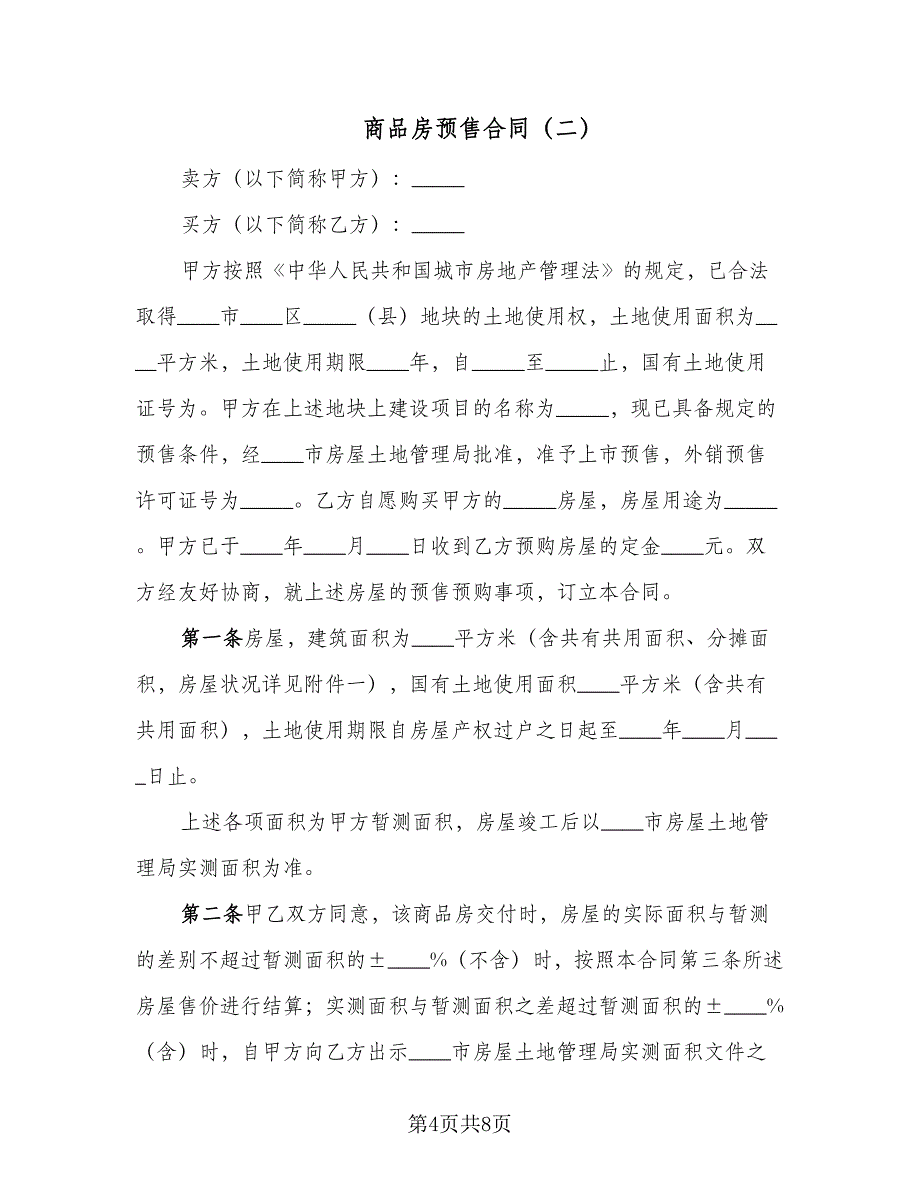 商品房预售合同（二）
卖方（以下简称甲方）：_____
买方（以下简称乙方）：_____
甲方按照《中华人民共和国城市房地产管理法》的规定，已合法
取得____市____区_____（县）地块的土地使用权，土地使用面积为__
__平方米，土地使用期限____年，自_____至_____止，国有土地使用
证号为。甲方在上述地块上建设项目的名称为_____，现已具备规定的
预售条件，经____市房屋土地管理局批准，准予上市预售，外销预售
许可证号为_____。乙方自愿购买甲方的_____房屋，房屋用途为_____
。甲方已于____年____月____日收到乙方预购房屋的定金____元。双
方经友好协商，就上述房屋的预售预购事项，订立本合同。
第一条房屋，建筑面积为____平方米（含共有共用面积、分摊面
积，房屋状况详见附件一），国有土地使用面积____平方米（含共有
共用面积），土地使用期限自房屋产权过户之日起至____年____月___
_日止。
上述各项面积为甲方暂测面积，房屋竣工后以____市房屋土地管
理局实测面积为准。
第二条甲乙双方同意，该商品房交付时，房屋的实际面积与暂测
的差别不超过暂测面积的±____%（不含）时，按照本合同第三条所述
房屋售价进行结算；实测面积与暂测面积之差超过暂测面积的±____%
（含）时，自甲方向乙方出示____市房屋土地管理局实测面积文件之
第4页共8页